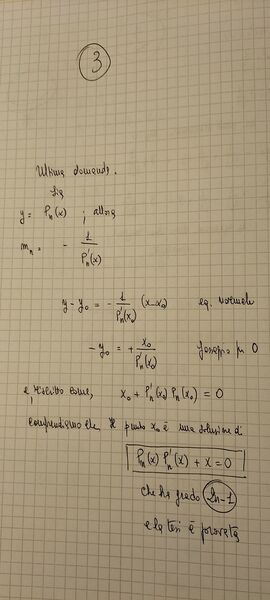 3
Ultima domanda.
Sia
y = Pₙ(x) ; allora
mₙ = - 1/P'ₙ(x)
y - y₀ = - 1/P'ₙ(x₀) (x-x₀) eq. normale
-y₀ = + x₀/P'ₙ(x₀) passaggio per 0
e, riscritto come, x₀ + P'ₙ(x₀) Pₙ(x₀) = 0
comprendiamo che il punto x₀ è una soluzione di
Pₙ(x) P'ₙ(x) + x = 0
che ha grado 2n-1
e la tesi è provata